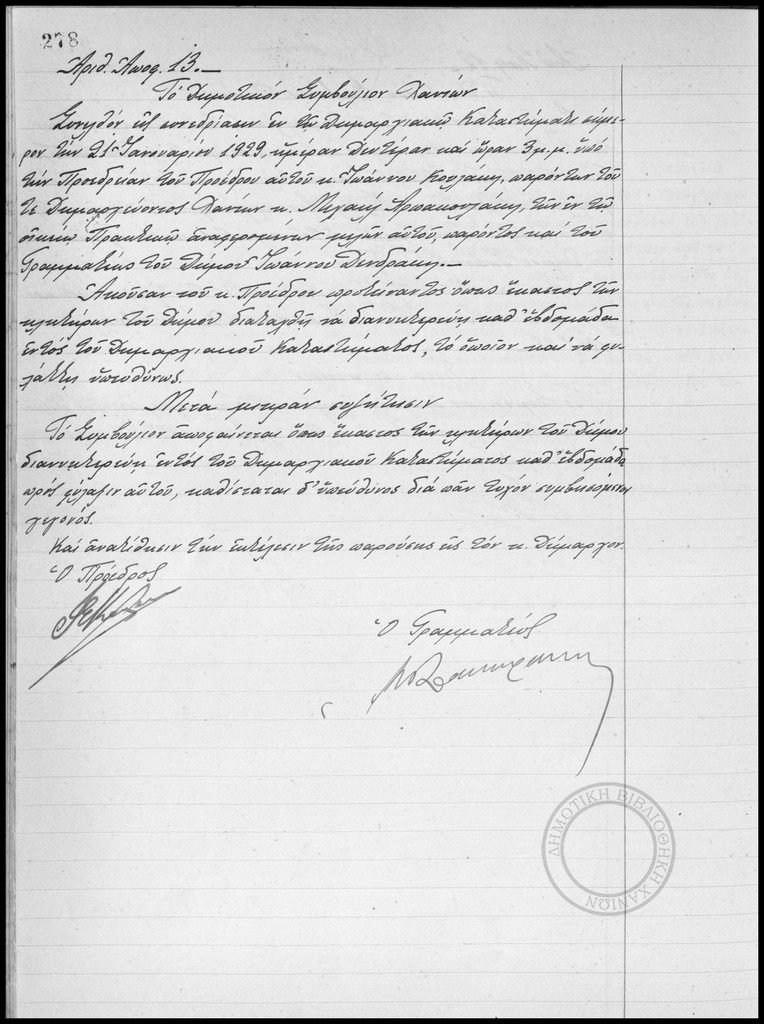 278
Ἀριθ. Ἀποφ. 13.—
Τὸ Δημοτικὸν Συμβούλιον Χανίων
Συνελθὸν εἰς συνεδρίασιν ἐν τῷ Δημαρχιακῷ Καταστήματι σήμε-
ρον τὴν 21ην Ἰανουαρίου 1929, ἡμέραν Δευτέραν καὶ ὥραν 3 μ.μ. ὑπὸ
τὴν Προεδρείαν τοῦ Προέδρου αὐτοῦ κ. Ἰωάννου Κουλάκη, παρόντων τοῦ
τε Δημαρχεύοντος Χανίων κ. Μιχαὴλ τῶν ἐν τῷ
οἰκείῳ Πρακτικῷ ἀναφερομένων μελῶν αὐτοῦ, παρόντος καὶ τοῦ
Γραμματέως τοῦ Δήμου Ἰωάννου Δενδράκη.—
Ἀκοῦσαν τοῦ κ. Προέδρου προτείναντος ὅπως ἕκαστος τῶν
κλητήρων τοῦ Δήμου διαταχθῇ νὰ διανυκτερεύῃ καθ' ἑβδομάδα
ἐντὸς τοῦ Δημαρχιακοῦ Καταστήματος, τὸ ὁποῖον καὶ νὰ φυ-
λάττῃ ὑπευθύνως.
Μετὰ μικρὰν συζήτησιν
Τὸ Συμβούλιον ἀποφαίνεται ὅπως ἕκαστος τῶν κλητήρων τοῦ Δήμου
διανυκτερεύῃ ἐντὸς τοῦ Δημαρχιακοῦ Καταστήματος καθ' ἑβδομάδα
πρὸς φύλαξιν αὐτοῦ, καθίσταται δ' ὑπεύθυνος διὰ πᾶν τυχὸν συμβησόμενον
γεγονός.
Καὶ ἀνατίθησιν τὴν ἐκτέλεσιν τῆς παρούσης εἰς τὸν κ. Δήμαρχον.
Ὁ Πρόεδρος
Ὁ Γραμματεὺς
ΔΗΜΟΤΙΚΗ ΒΙΒΛΙΟΘΗΚΗ ΧΑΝΙΩΝ